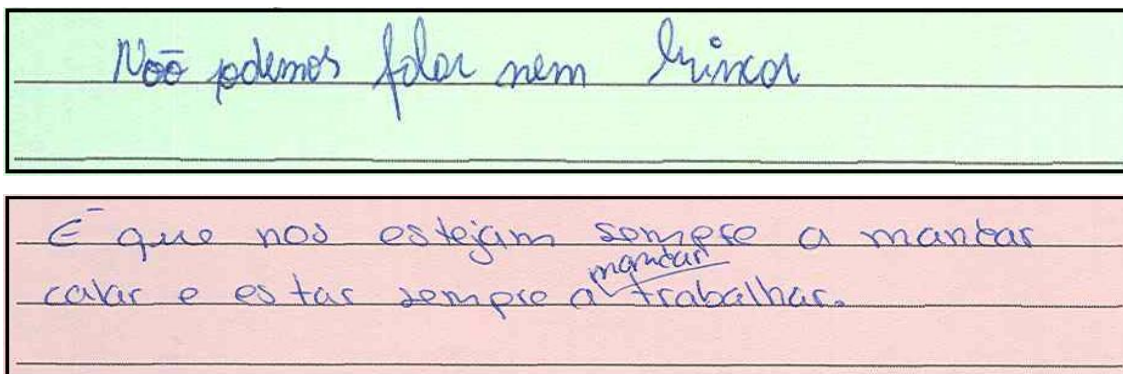 Não podemos falar nem brincar
É que nos estejam sempre a mandar
calar e estar sempre a mandar trabalhar.